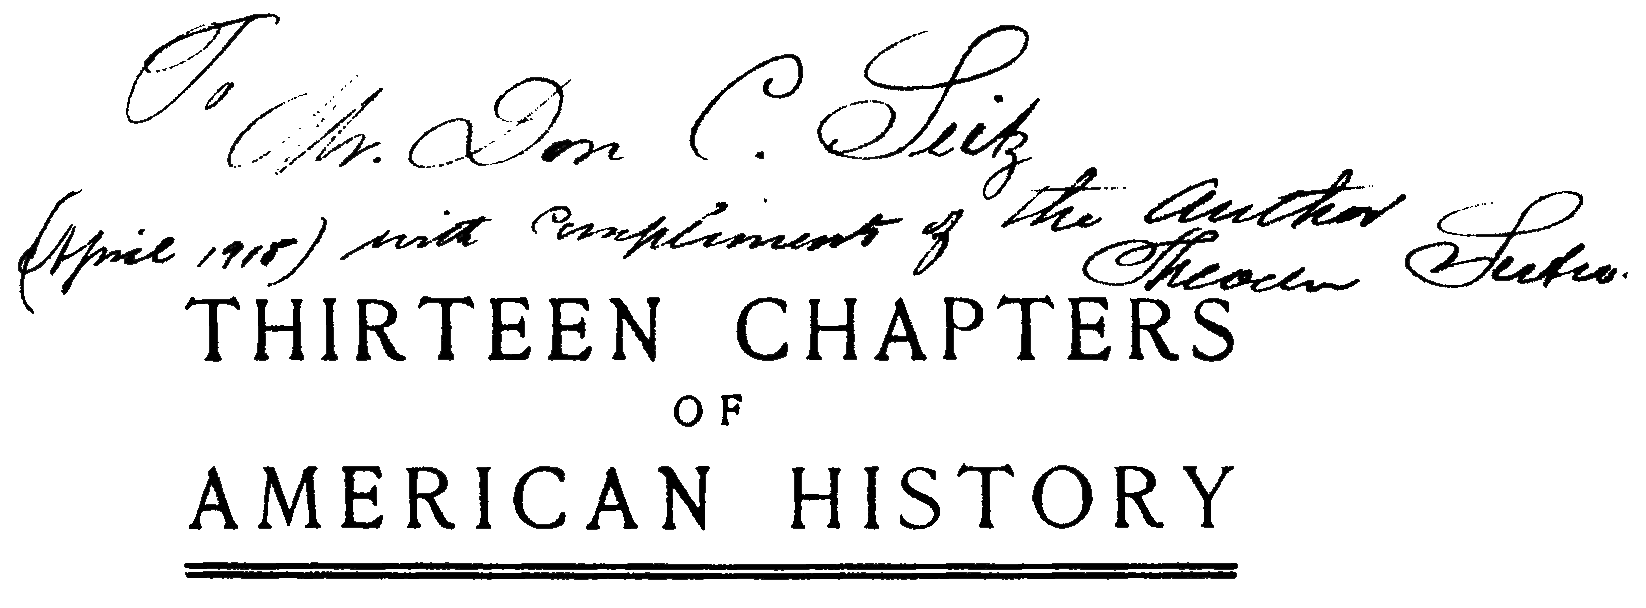 To
Mr. Don C. Seitz
(April 1918) with compliments of the Author
Theodore Sutro.
THIRTEEN CHAPTERS
OF
AMERICAN HISTORY